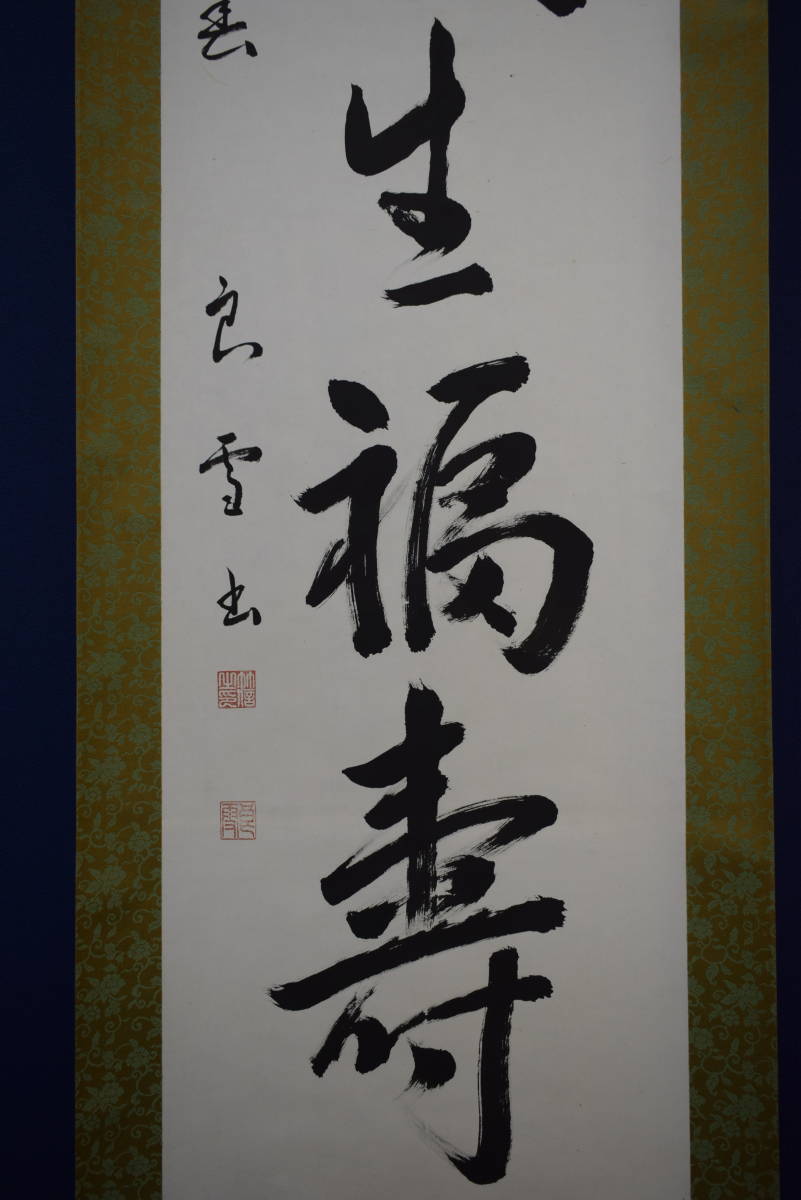 生福壽
春 良雪書